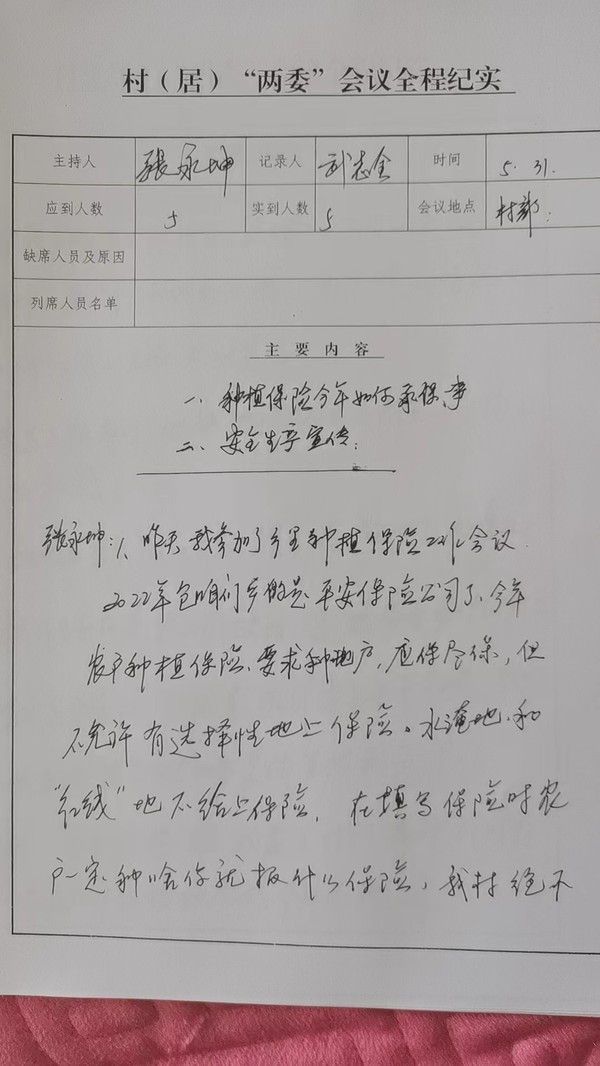 村（居）“两委”会议全程纪实
主持人 张永坤 记录人 武志全 时间 5.31.
应到人数 5 实到人数 5 会议地点 村部：
缺席人员及原因
列席人员名单
主要内容
一、种植保险今年如何承保事
二、安全生产宣传：
张永坤：1、昨天我参加了乡里种植保险工作会议.
2022年包咱们乡的是平安保险公司了、今年
农户种植保险、要求种地户，应保尽保，但
不允许有选择性地上保险。水淹地、和
“红线”地不给上保险，在填写保险时农
户一定种啥你就报什么保险，我村绝不